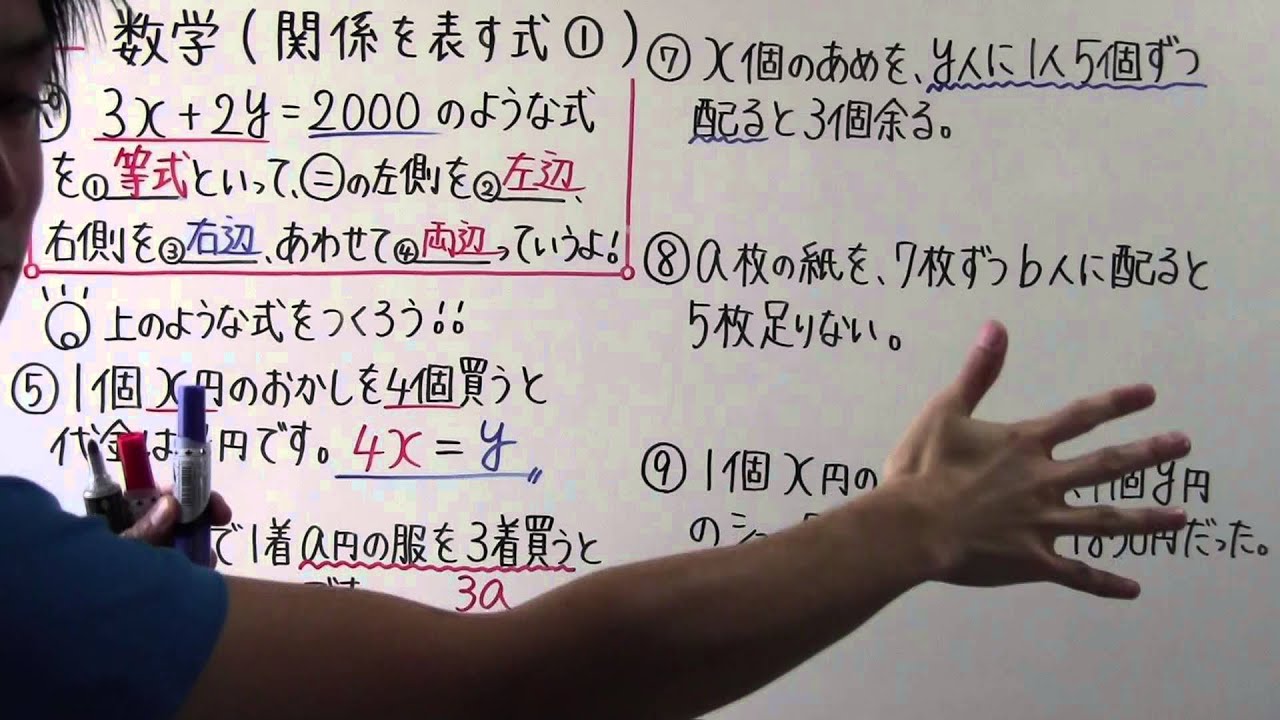 数学(関係を表す式①)
3x+2y=2000のような式
を①等式といって、=の左側を②左辺、
右側を③右辺、あわせて④両辺っていうよ!
上のような式をつくろう!!
⑤1個x円のおかしを4個買うと
代金は 円です。4x=y
で1着a円の服を3着買うと
3a
⑦x個のあめを、y人に1人5個ずつ
配ると3個余る。
⑧a枚の紙を、7枚ずつb人に配ると
5枚足りない。
⑨1個x円の 個y円
のシュ 円だった。